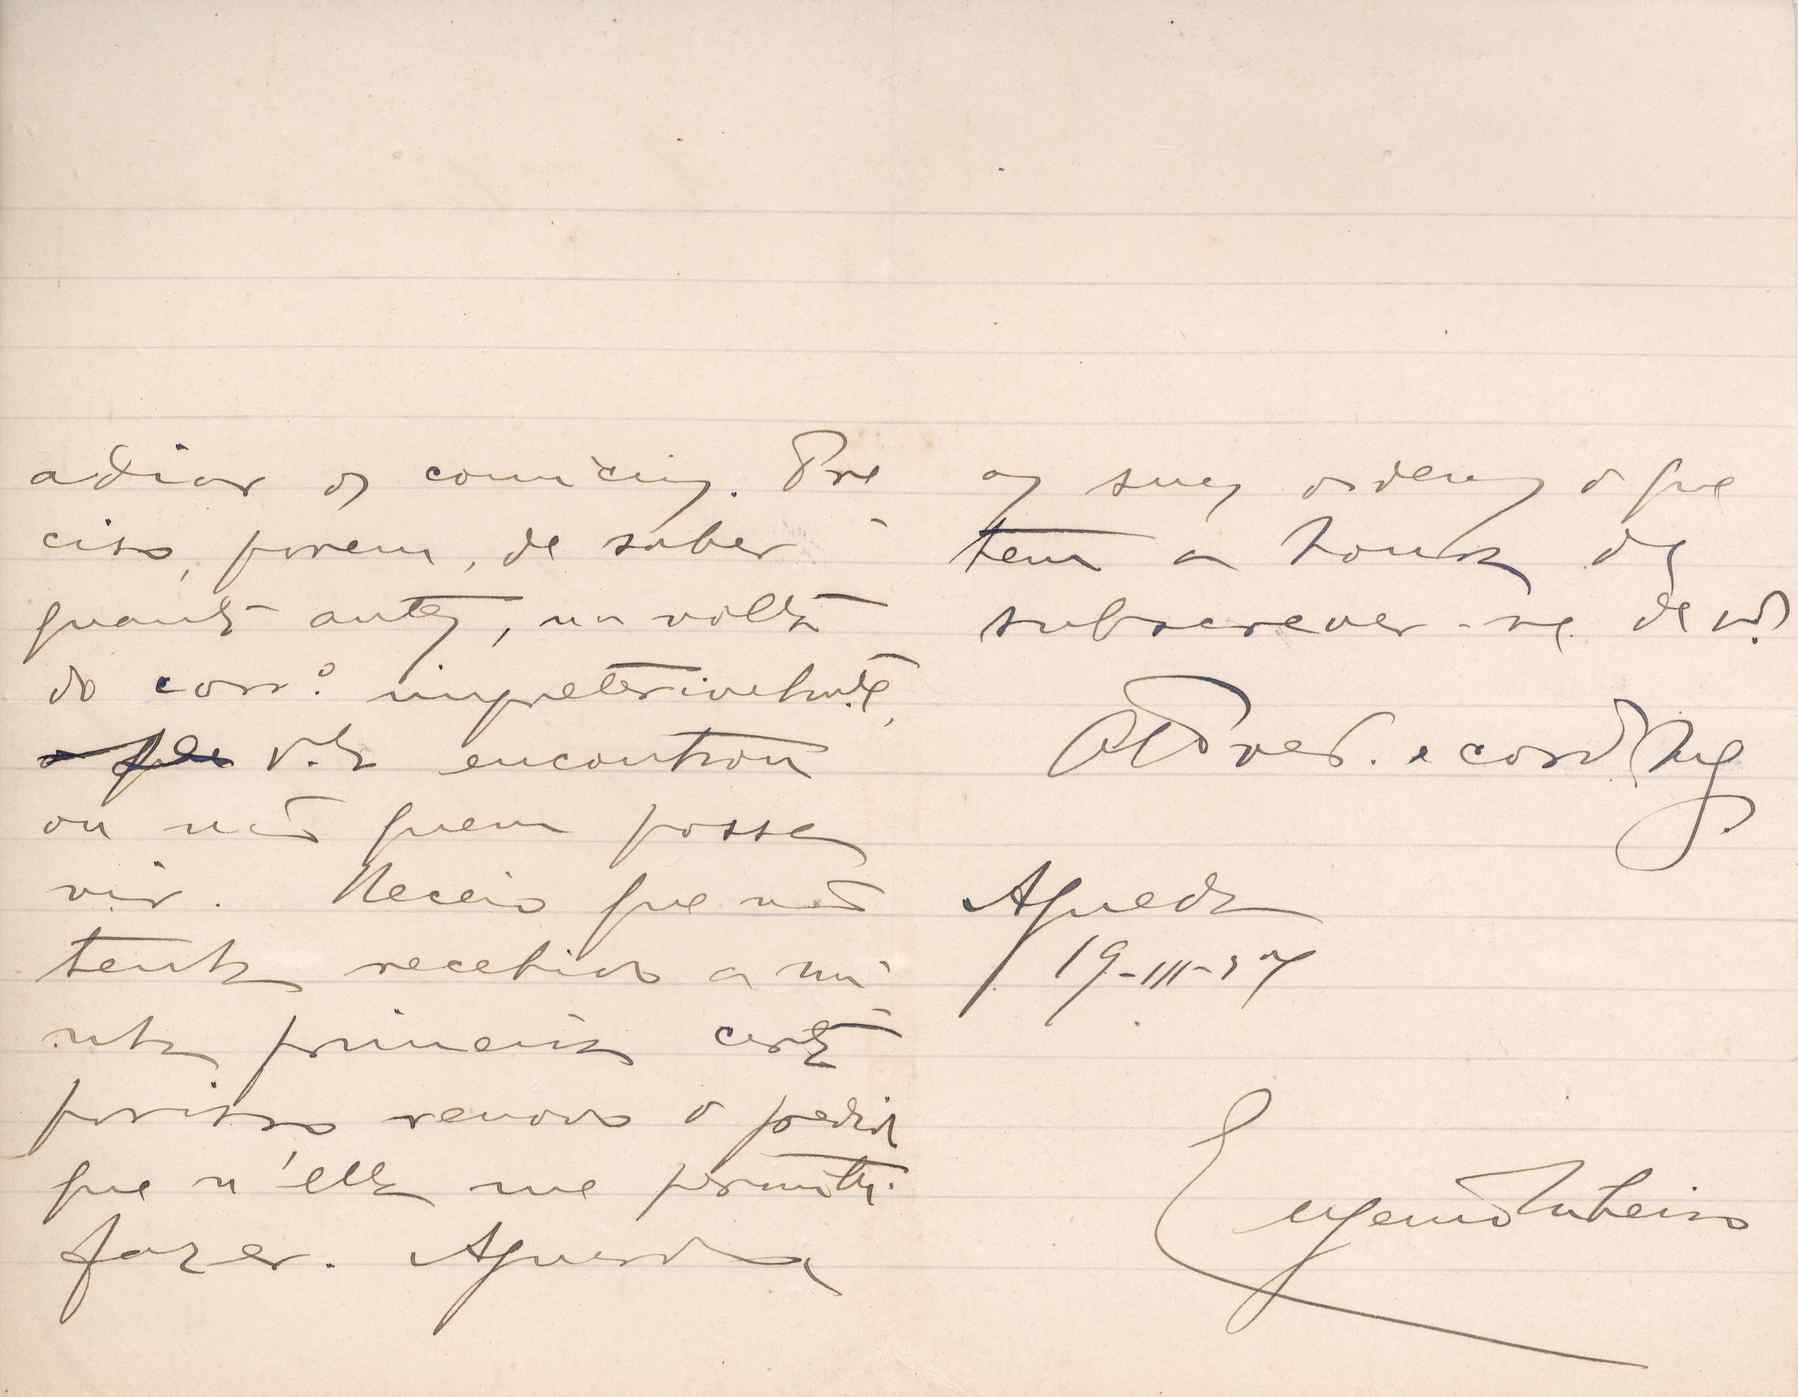 adiar os comicios. Pre
ciso, porem, de saber
quanto antes, na volta
do corr.º impreterivelm.te,
V. Ex.ª encontrou
ou não quem possa
vir. Receio que não
tenha recebido a mi-
nha primeira carta
porisso renovo o pedido
que n'ella me permitti
fazer. Aguarda
as suas ordens o que
tem a honra de
subscrever-se de V.
Agueda
19-III-07
Eugenio Ribeiro